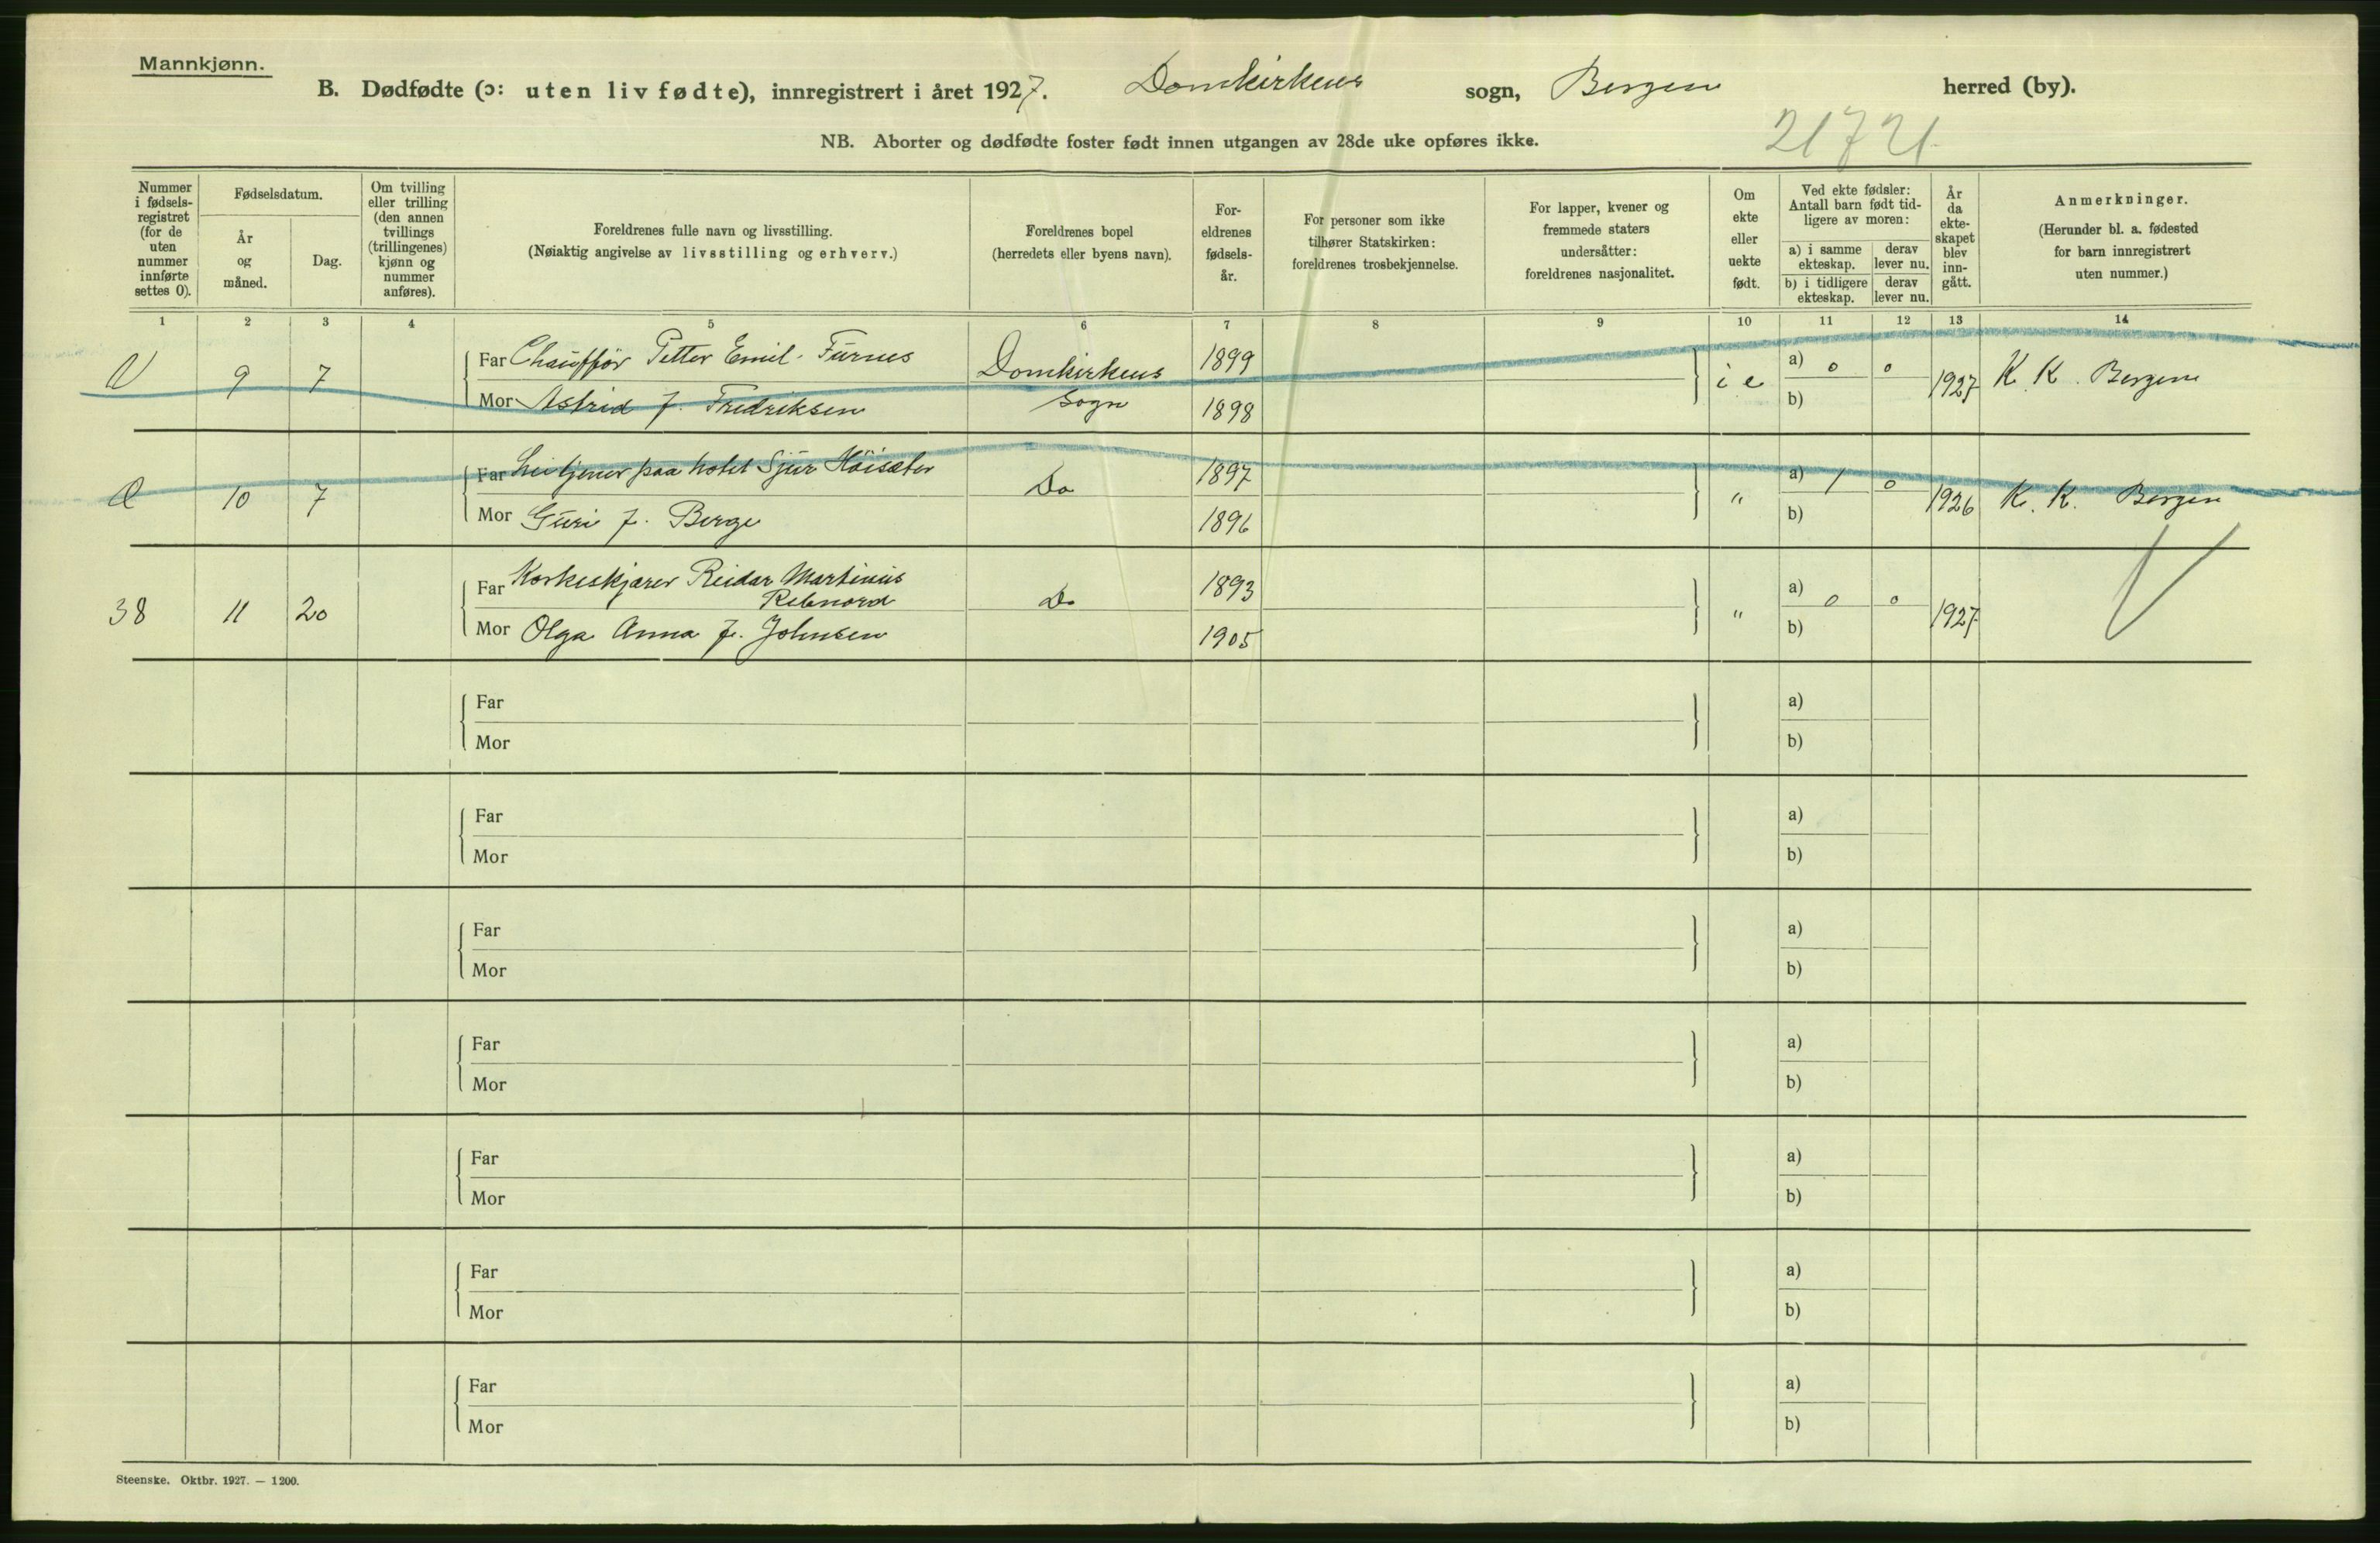 Mannkjønn.
B. Dødfødte (ɔ: uten liv fødte), innregistrert i året 1927. Domkirkens sogn, Bergen herred (by).
NB. Aborter og dødfødte foster født innen utgangen av 28de uke opføres ikke.
21721
Nummer i fødsels-registret (for de uten nummer innførte settes 0).
Fødselsdatum.
År og måned.
Dag.
Om tvilling eller trilling (den annen tvillings (trillingenes) kjønn og nummer anføres).
Foreldrenes fulle navn og livsstilling.
(Nøiaktig angivelse av livsstilling og erhverv.)
Foreldrenes bopel
(herredets eller byens navn).
For-eldrenes fødsels-år.
For personer som ikke tilhører Statskirken: foreldrenes trosbekjennelse.
For lapper, kvener og fremmede staters undersåtter: foreldrenes nasjonalitet.
Om ekte eller uekte født.
Ved ekte fødsler: Antall barn født tid-ligere av moren:
a) i samme ekteskap.
derav lever nu.
b) i tidligere ekteskap.
derav lever nu.
År da ekte-skapet blev inn-gått.
Anmerkninger.
(Herunder bl. a. fødested for barn innregistrert uten nummer.)
1 2 3 4 5 6 7 8 9 10 11 12 13 14
9 7 Far Chauffør Petter Emil Furnes Domkirkens 1899 i e a) 0 0 1927 K. K. Bergen
Mor Astrid f. Fredriksen Sogn 1898 b)
10 7 Far tjener paa hotel Sjur Höisæter Do 1897 " a) 1 0 1926 K. K. Bergen
Mor Guri f. Berge 1896 b)
38 11 20 Far Korkeskjærer Reidar Martinius Do 1893 " a) 0 0 1927
Rebnord
Mor Olga Anna f. Johnsen 1905 b)
Far a)
Mor b)
Far a)
Mor b)
Far a)
Mor b)
Far a)
Mor b)
Far a)
Mor b)
Far a)
Mor b)
Far a)
Mor b)
Steenske. Oktbr. 1927. — 1200.